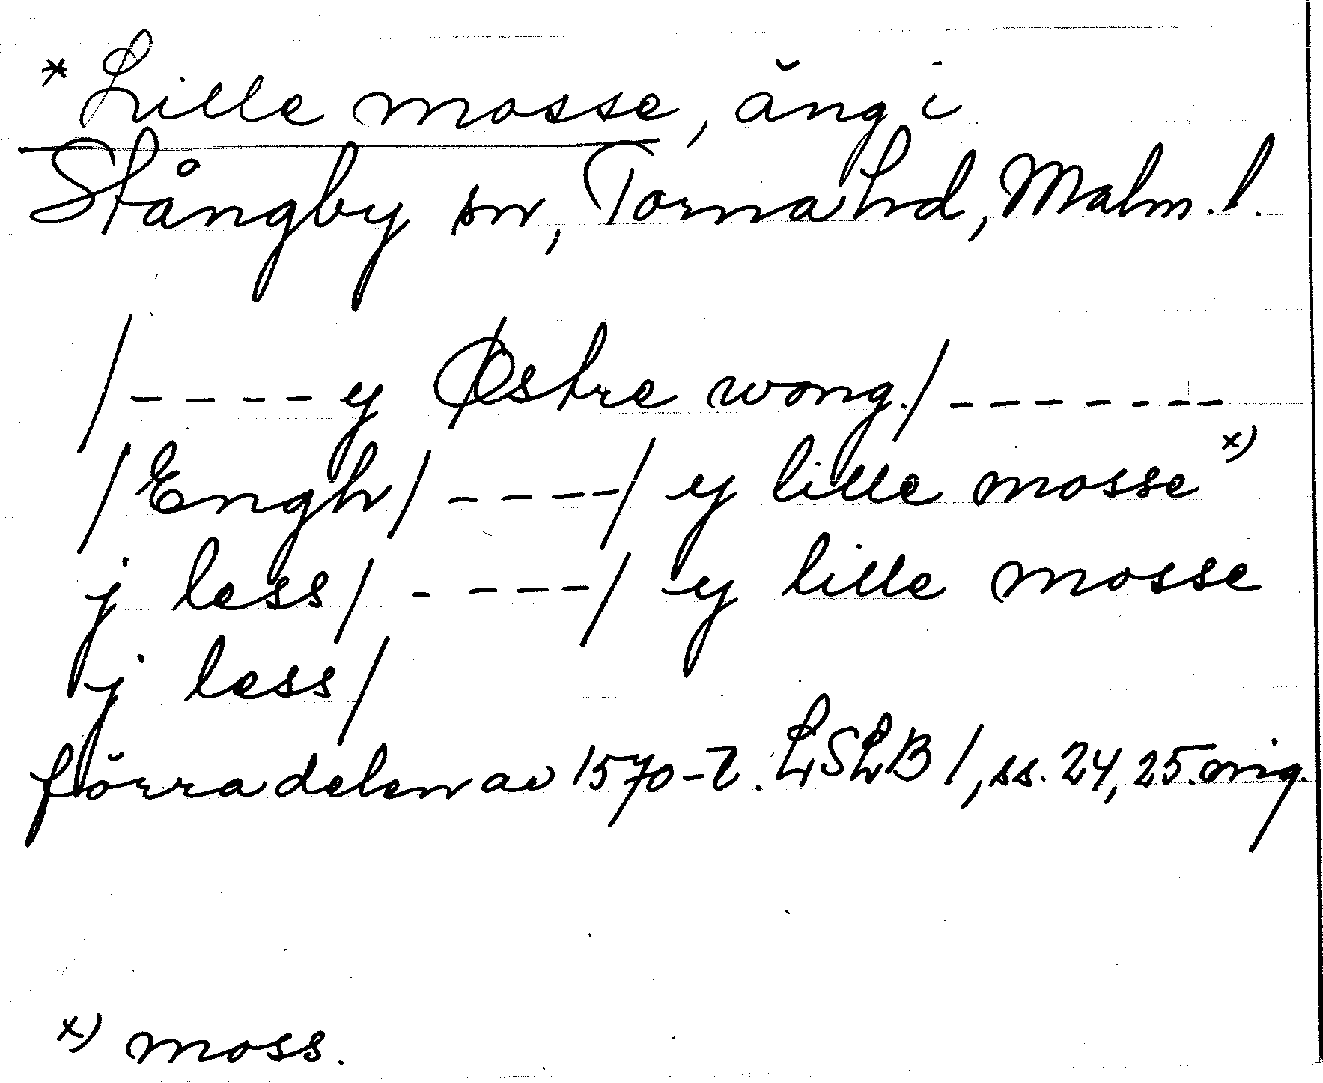 * Lille mosse, äng i
Stångby sn, Torna hd, Malm. l.
/---- y Østre wong./-------
/Engh/----/ y lille mosse x)
j less/ ----/ y lille mosse
j less/
förra delen av 1570-t. LSLB 1, ss. 24, 25. orig.
x) moss.